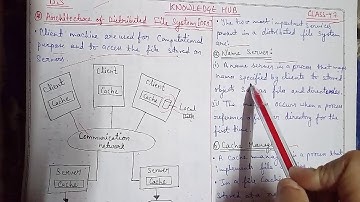 DIS
KNOWLEDGE HUB
CLASS-47
Architecture of Distributed
File System [DFS]
• Client machine are used for Computational
purpose and to access the file stored on
Servers
Client
Cache
Client
Cache
Client
Cache
Local
Communication
network
Server
Cache
Server
Cache
• The two most important Services
present in a distributed file
System are:
Name Server:
i) A name server is a process that maps
names specified by clients to stored
objects such as files and directories.
ii) The occurs when a process
reference a file or directory for the
first time.
Cache Manager
A cache is a process that
implement file
In a file Cach
stored at a